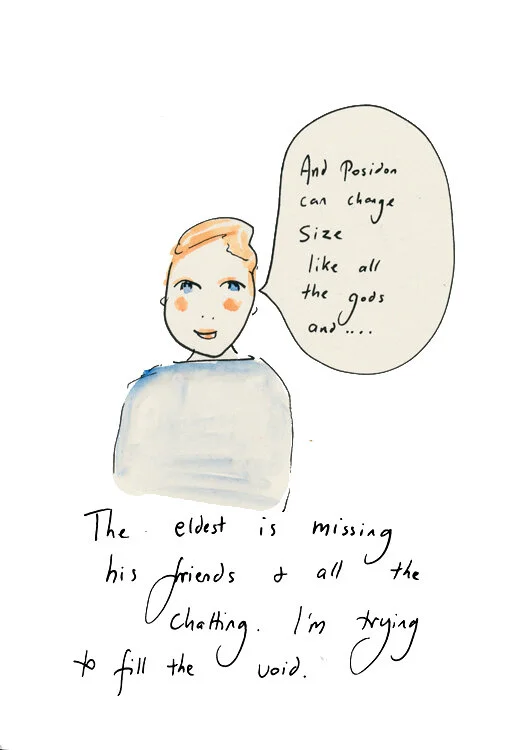 And Posidon
can change
Size
like all
the gods
and....
The eldest is missing
his friends & all the
chatting. I'm trying
to fill the void.